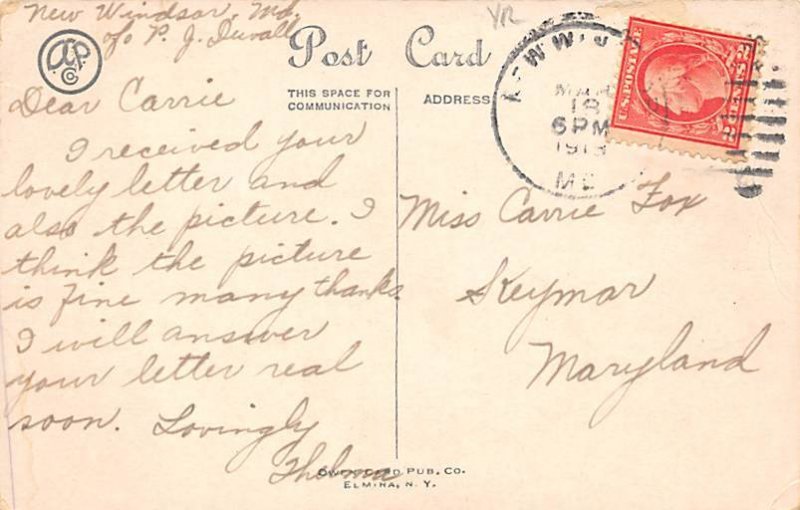 New Windsor, Md.
c/o P. J. Duvall
Post Card
THIS SPACE FOR
COMMUNICATION
ADDRESS
Dear Carrie
I received your
lovely letter and
also the picture. I
think the picture
is fine many thanks.
I will answer
your letter real
soon. Lovingly
Thelma
Miss Carrie Fox
Keymar
Maryland
18
6 PM
1918
MD
U.S. POSTAGE
PUB. CO.
ELMIRA, N. Y.